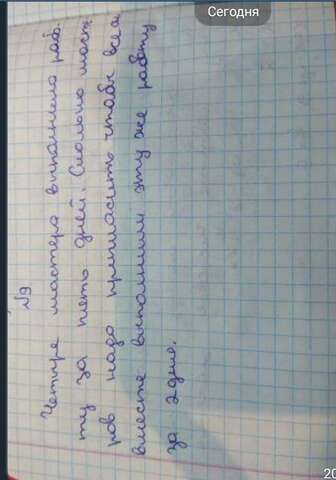 Сегодня
№9
Четыре мастера выполнили рабо-
ту за пять дней. Сколько масте-
ров надо пригласить чтобы все
вместе выполнили эту же работу
за 2 дня.
20